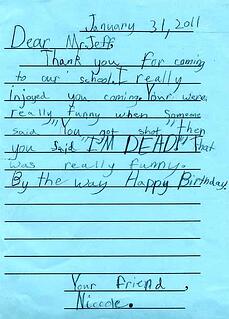 January 31, 2011
Dear Mr. Jeff,
Thank you for coming
to our school. I really
injoyed you coming. Your were
really funny when someone
said "You got shot" then
you said "I'M DEAD!" That
was really funny.
By the way Happy Birthday.
Your friend,
Nicole.